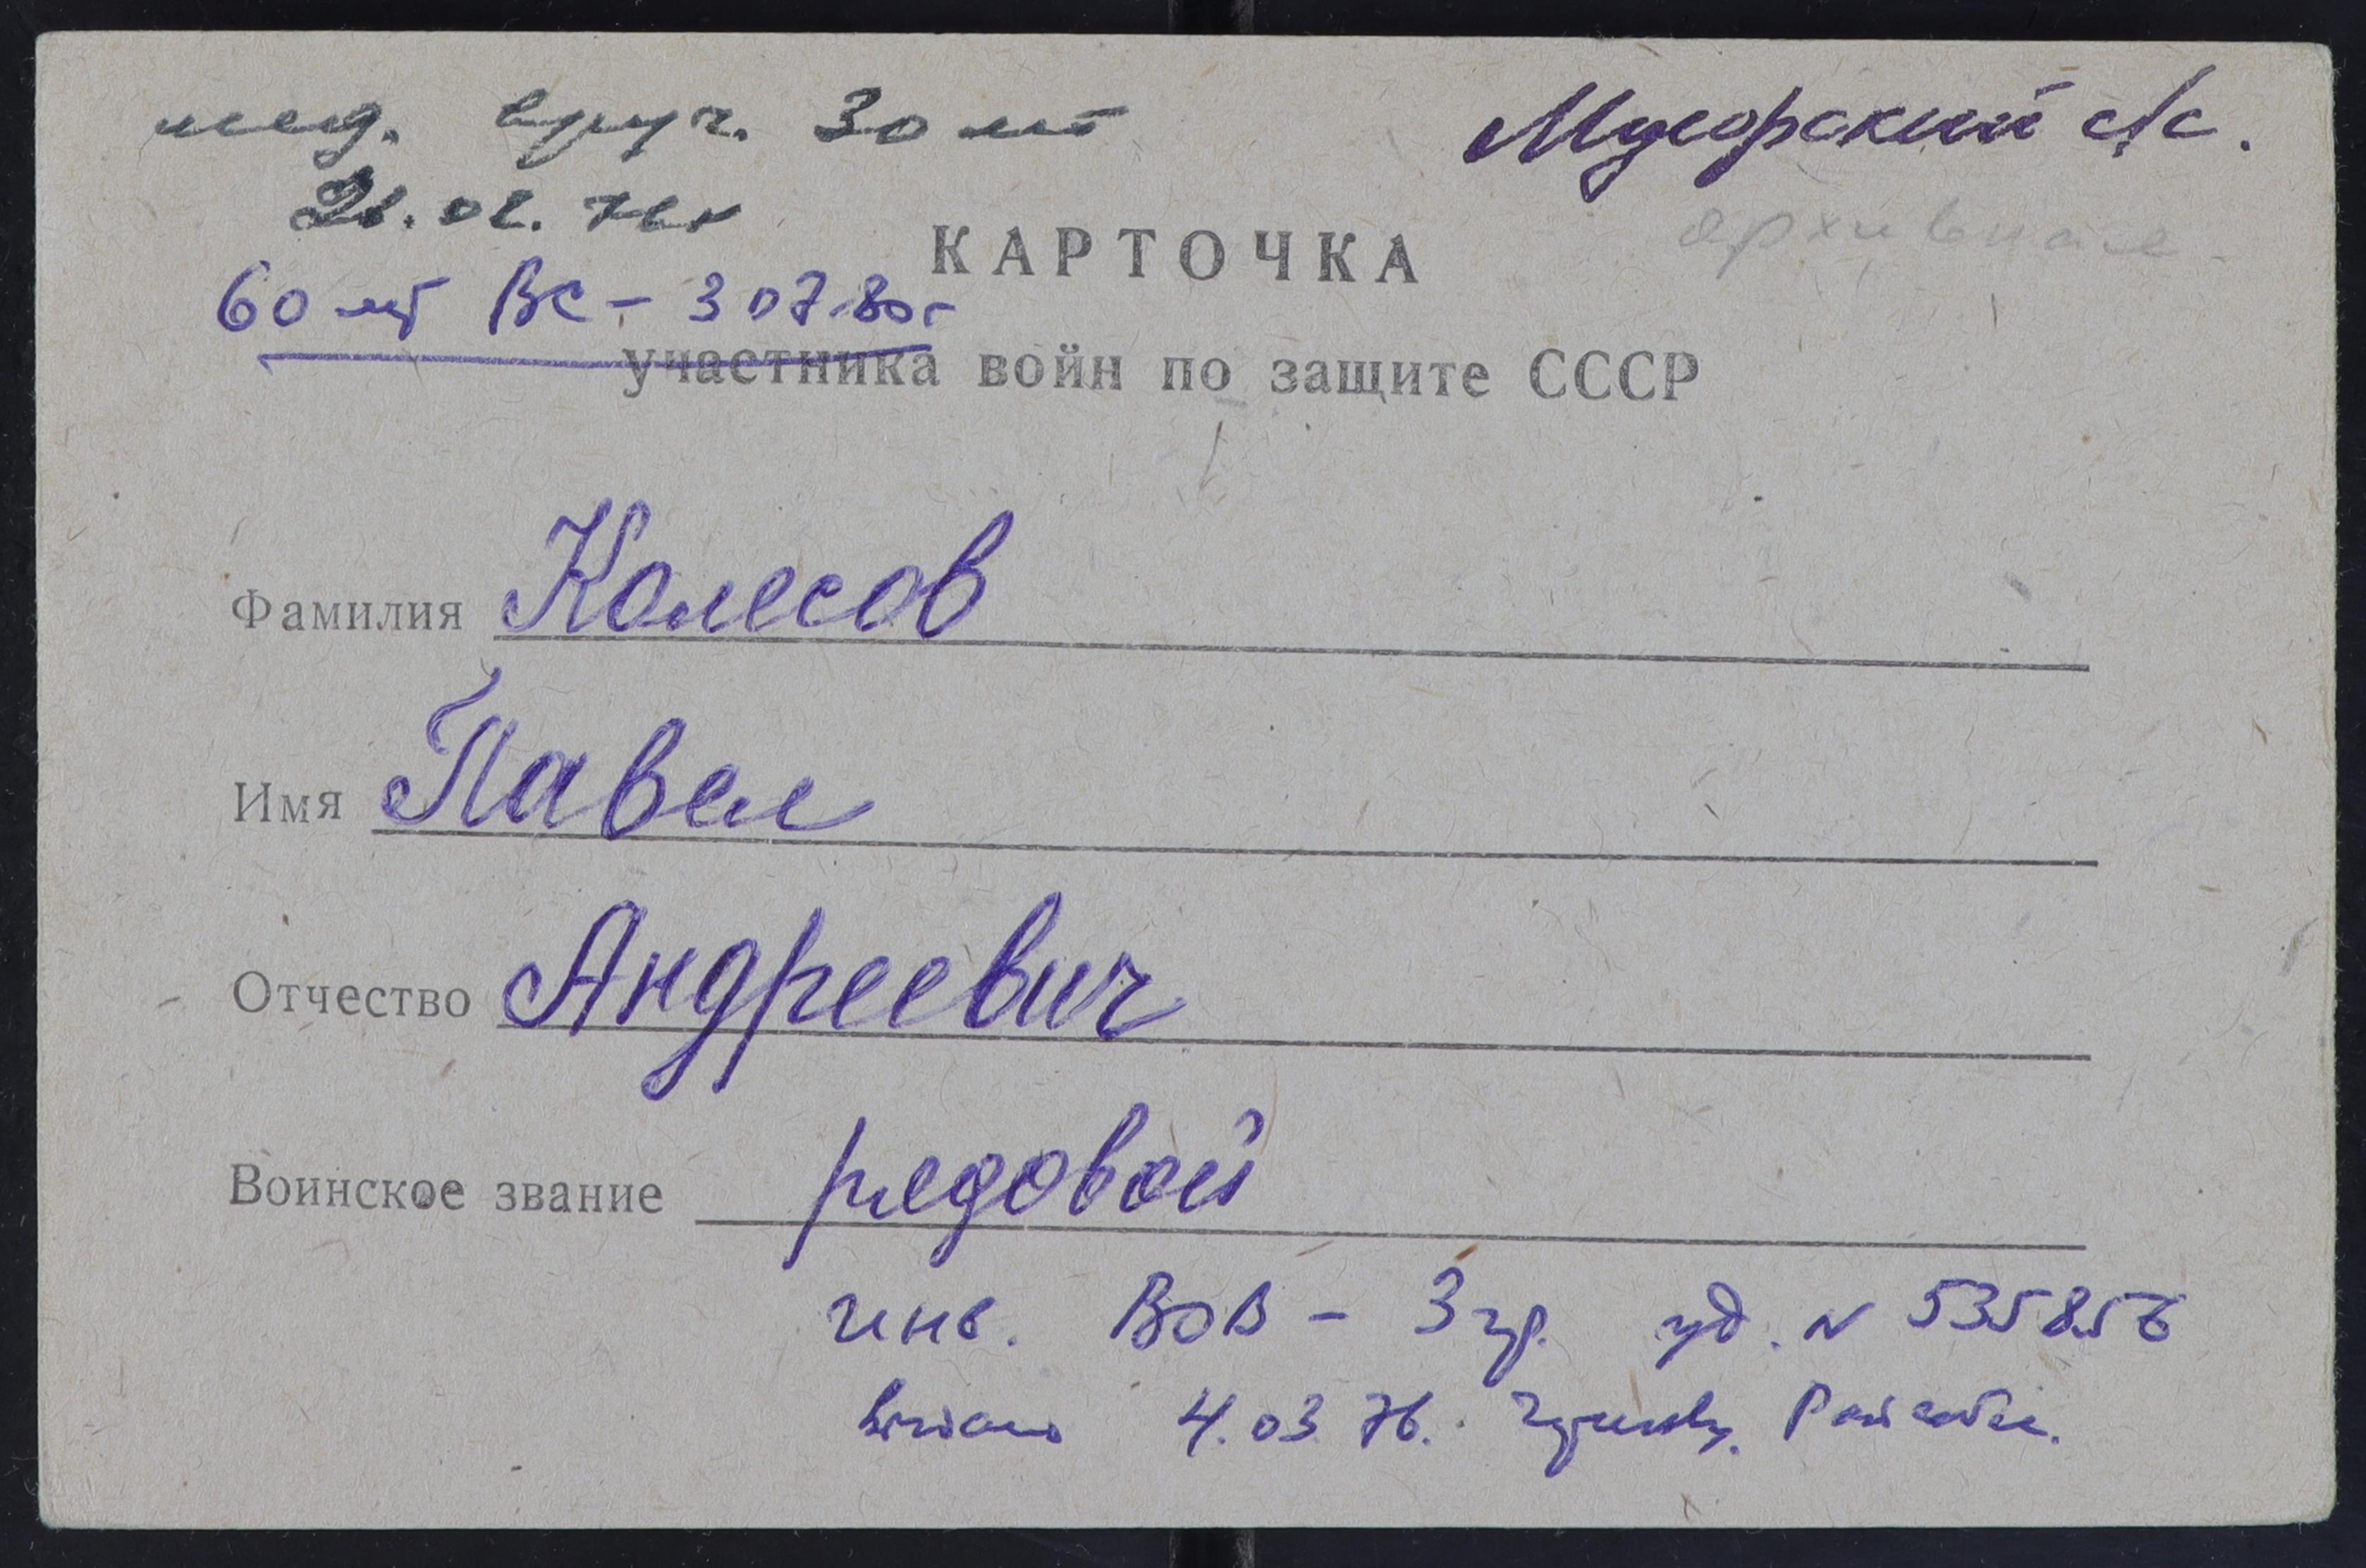 мед. вруч. 30 лет
Мужорский с/с.
21.02.76г
архивная
КАРТОЧКА
60 лет ВС - 3 07.80г
участника войн по защите СССР
Фамилия Колесов
Имя Павел
Отчество Андреевич
Воинское звание рядовой
инв. ВОВ - 3 гр. уд. N 535856
4.03.76.